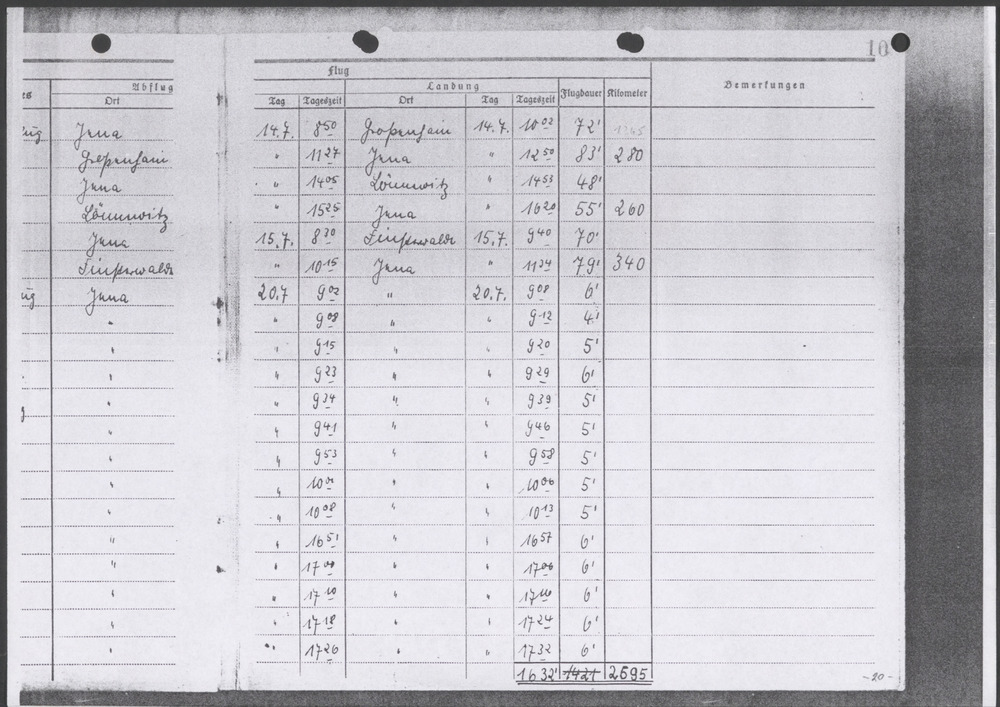 10
Flug
Abflug Landung Flugdauer Kilometer Bemerkungen
Ort Tag Tageszeit Ort Tag Tageszeit
Jena 14.7. 8 50 Großenhain 14.7. 10 02 72'
Großenhain " 11 27 Jena " 12 50 83' 280
Jena " 14 05 Lönnewitz " 14 53 48'
Lönnewitz " 15 25 Jena " 16 20 55' 260
Jena 15.7. 8 30 Finsterwalde 15.7. 9 40 70'
Finsterwalde " 10 15 Jena " 11 34 79' 340
Jena 20.7 9 02 " 20.7. 9 08 6'
" " 9 08 " " 9 12 4'
" " 9 15 " " 9 20 5'
" " 9 23 " " 9 29 6'
" " 9 34 " " 9 39 5'
" " 9 41 " " 9 46 5'
" " 9 53 " " 9 58 5'
" " 10 01 " " 10 06 5'
" " 10 08 " " 10 13 5'
" " 16 51 " " 16 57 6'
" " 17 00 " " 17 06 6'
" " 17 10 " " 17 16 6'
" " 17 18 " " 17 24 6'
" " 17 26 " " 17 32 6'
1632' 1421 2695
-20-